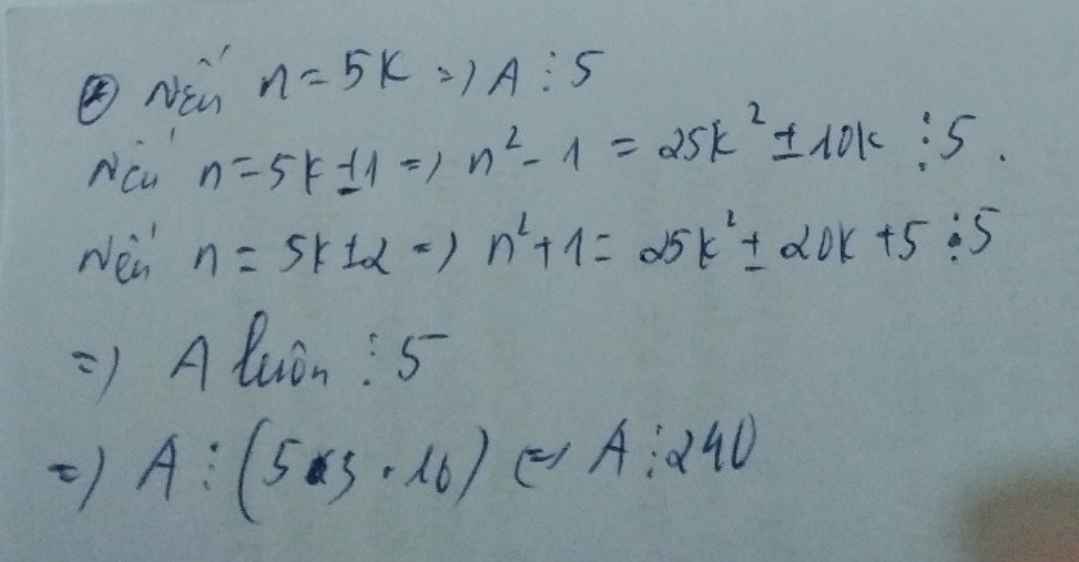 ⊛ Nếu n = 5k => A ⋮ 5
Nếu n = 5k ± 1 => n² - 1 = 25k² ± 10k ⋮ 5.
Nếu n = 5k ± 2 => n² + 1 = 25k² ± 20k + 5 ⋮ 5
=> A luôn ⋮ 5
=> A ⋮ (5 . 3 . 16) <=> A ⋮ 240